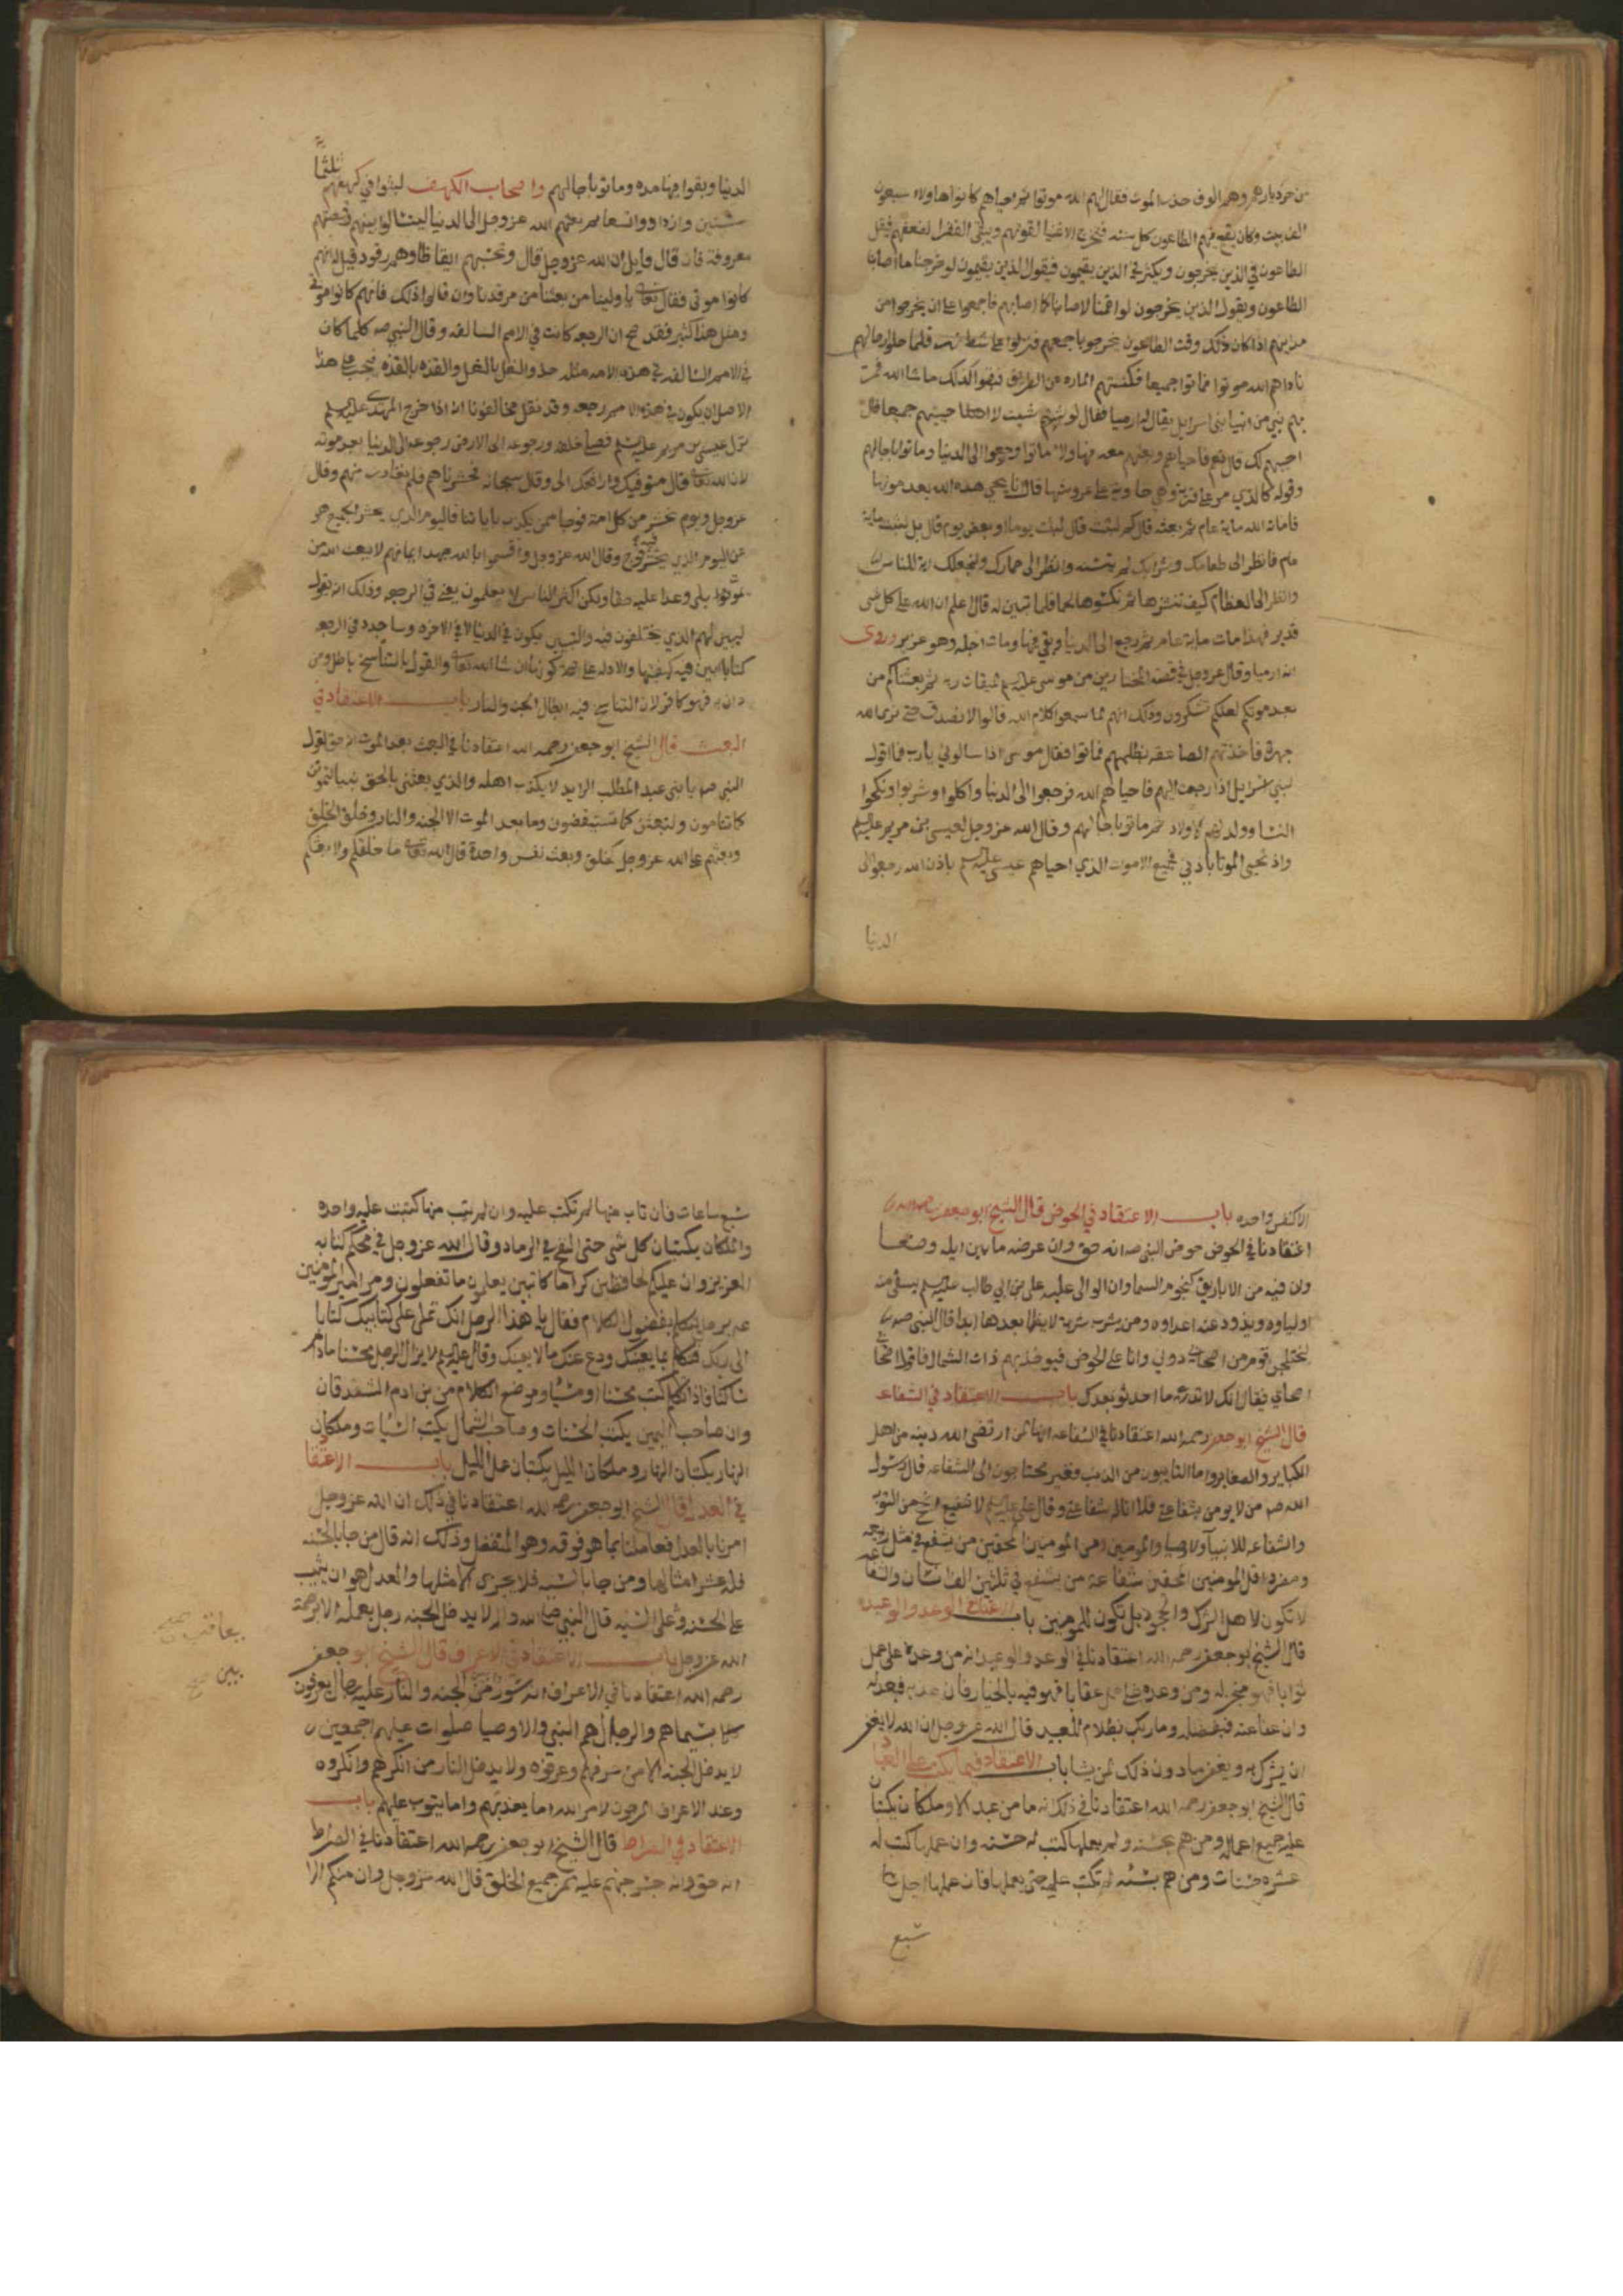 من خرج ديارهم وهم الوف حذر الموت فقال لهم الله موتوا ثم احياهم كانوا هاولاء سبعون
الف بيت وكان يقع فيهم الطاعون كل سنه فيخرج الاغنيا لقوتهم ويبقى الفقرا لضعفهم فيقل
الطاعون في الذين يخرجون ويكثر في الذين يقيمون فيقول الذين يقيمون لو خرجنا ما اصابنا
الطاعون ويقول الذين يخرجون لو اقمنا لاصابنا كما اصابهم فاجمعوا على ان يخرجوا من
ديارهم اذا كان ذلك وقت الطاعون فخرجوا باجمعهم فنزلوا على شط فلما حلوا رحالهم
ناداهم الله موتوا فماتوا جميعا فكنستهم الماره عن الطريق فبقوا كذلك ما شا الله فمرت
بهم نبي من انبيا بني اسرايل يقال له ارميا فقال لو شيت لاحييتهم جميعا قال
احييهم لك قال نعم فاحياهم وبعثهم معه فهاولا ماتوا ورجعوا الى الدنيا وماتوا باجالهم
وقوله كالذي مر على قرية وهي خاوية على عروشها قال انا يحي هذه الله بعد موتها
فاماته الله ماية عام ثم بعثه قال كم لبثت قال لبثت يوما او بعض يوم قال بل لبثت ماية
عام فانظر الى طعامك وشرابك لم يتسنه وانظر الى حمارك ولنجعلك اية للناس
وانظر الى العظام كيف ننشزها ثم نكسوها لحما فلما تبين له قال اعلم ان الله على كل شى
قدير فهذا مات ماية عام ثم رجع الى الدنيا وبقي فيها ومات اجله وهو عزير وروى
انه ارميا وقال عز وجل في قصة المختارين من موسى عليه السلم لميقات ربه ثم بعثناكم من
بعد موتكم لعلكم تشكرون وذلك انهم لما سمعوا كلام الله قالوا لا نصدق حتى نرى الله
جهرة فاخذتهم الصاعقه بظلمهم فماتوا فقال موسى اذا سالوني يا رب فما اقول
لبني اسرايل اذا رجعت اليهم فاحياهم الله فرجعوا الى الدنيا واكلوا وشربوا ونكحوا
النسا وولد لهم الاولاد ثم ماتوا باجالهم وقال الله عز وجل لعيسى بن مريم عليه السلم
واذ تحيي الموتا باذني فجميع الاموت الذي احياهم عيسى عليه السلم باذن الله رجعوا الى
الدنيا
الدنيا وبقوا فيها مده وماتوا باجالهم واصحاب الكهف لبثوا في كهفهم ثلثما
سنين وازدادوا تسعا ثم بعثهم الله عز وجل الى الدنيا ليتسالوا بينهم وقصتهم
معروفة فان قال قايل ان الله عز وجل قال وتحسبهم ايقاظا وهم رقود قيل انهم
كانوا موتى فقال تعالى يا ولينا من بعثنا من مرقدنا وان قالوا ذلك فانهم كانوا موتى
ومثل هذا كثير فقد صح ان الرجعه كانت في الامم السالفه وقال النبي صه كلما كان
في الامم السالفه في هذه الامه مثله حذو النعل بالنعل والقذه بالقذه فيجب على هذا
الاصل ان يكون في هذه الامم رجعه وقد نقل مخالفونا انه اذا خرج المهدى عليه السلم
نزل عيسى بن مريم عليه السلم فصلى خلفه ورجوعه الى الارض رجوعه الى الدنيا بعد موته
لان الله تعالى قال متوفيك ورافعك الى وقال سبحانه فحشرناهم فلم نغادر منهم وقال
عز وجل ويوم نحشر من كل امة فوجا ممن يكذب باياتنا فاليوم الذي يحشر الجميع هو
غير اليوم الذي يحشر فيه فوج وقال الله عز وجل واقسموا بالله جهد ايمانهم لا يبعث الله من
يموت بلى وعدا عليه حقا ولكن اكثر الناس لا يعلمون يعني في الرجعه وذلك انه يقول
ليبين لهم الذي يختلفون فيه والتبيين يكون في الدنيا لا في الاخره وساجدد في الرجعه
كتابا ابين فيه كيفيتها والادله على صحة كونها ان شا الله تعالى والقول بالتناسخ باطل ومن
دان به فهو كافر لان التناسخ فيه ابطال الجنه والنار باب الاعتقاد في
البعث قال الشيخ ابو جعفر رحمه الله اعتقادنا في البعث بعد الموت انه حق لقول
النبي صه يا بني عبد المطلب الرايد لا يكذب اهله والذي بعثنى بالحق نبيا لتموتن
كما تنامون ولتبعثن كما تستيقضون وما بعد الموت الا الجنه والنار وخلق الخلق
وبعثهم على الله عز وجل كخلق وبعث نفس واحدة قال الله تعالى ما خلقكم ولا بعثكم
الا كنفس واحده باب الاعتقاد في الحوض قال الشيخ ابو جعفر رحمه الله
اعتقادنا في الحوض حوض النبي صه انه حق وان عرضه ما بين ايله وصنعا
وان فيه من الاباريق كنجوم السما وان الوالى عليه على بن ابي طالب عليه السلم يسقى منه
اولياوه ويذود عنه اعداوه ومن شرب شربة لا يظما بعدها ابدا قال النبي صه
ليختلجن قوم من اصحابي دوني وانا على الحوض فيوخذ بهم ذات الشمال فاقول اصحابي
اصحابي فيقال انك لا تدري ما احدثو بعدك باب الاعتقاد في الشفاعه
قال الشيخ ابو جعفر رحمه الله اعتقادنا في الشفاعه انها لمن ارتضى الله دينه من اهل
الكباير والصغاير واما التايبون من الذنب فغير محتاجون الى الشفاعه قال رسول
الله صه من لا يومن بشفاعتي فلا اناله شفاعتي وقال على عليه السلم لا شفيع انجح من التوبه
والشفاعه للانبيا والاوصيا والمومنين ومن المومنين المحقين من يشفع في مثل ربيعه
ومضر واقل المومنين المحقين شفاعة من يشفع في ثلثين الف انسان والشفاعه
لا تكون لاهل الشرك والجحود بل تكون للمومنين باب الاعتقاد في الوعد والوعيد
قال الشيخ ابو جعفر رحمه الله اعتقادنا في الوعد والوعيد انه من وعده على عمل
ثوابا فهو منجز له ومن وعده على عمل عقابا فهو فيه بالخيار فان عذبه فبعدله
وان عفا عنه فبفضله وما ربك بظلام للعبيد قال الله عز وجل ان الله لا يغفر
ان يشرك به ويغفر ما دون ذلك لمن يشا باب الاعتقاد فيما يكتب على العباد
قال الشيخ ابو جعفر رحمه الله اعتقادنا في ذلك انه ما من عبد الا وملكان يكتبان
عليه جميع اعماله ومن هم بحسنه ولم يعملها كتب له حسنه وان عملها كتب له
عشره حسنات ومن هم بسئه لم تكتب عليه حتى يعملها فان عملها اجل
سبع
سبع ساعات فان تاب منها لم تكتب عليه وان لم يتب منها كتبت عليه واحده
والملكان يكتبان كل شى حتى النفخ في الرماد وقال الله عز وجل في محكم كتابه
العزيز وان عليكم لحافظين كراما كاتبين يعلمون ما تفعلون ومر امير المومنين
عه برجل يتكلم بفضول الكلام فقال يا هذا الرجل انك تملى على كتابيك كتابا
الى ربك فتكلم بما يعنيك ودع عنك ما لا يعنيك وقال عليه السلم لا يزال الرجل محسنا مادام
ساكتا فاذا تكلم كتب محسنا او مسيا وموضع الكلام من بن ادم الشفتان
وان صاحب اليمين يكتب الحسنات وصاحب الشمال يكتب السيات وملكان
النهار يكتبان النهار وملكان الليل يكتبان عمل الليل باب الاعتقاد
في العدل قال الشيخ ابو جعفر رحمه الله اعتقادنا في ذلك ان الله عز وجل
امرنا بالعدل فعاملنا بما هو فوقه وهو المتفضل وذلك انه قال من جا بالحسنه
فله عشر امثالها ومن جا بالسيئه فلا يجزى الا مثلها والعدل هو ان يثيب
على الحسنه وعلى السيه قال النبي صلى الله عليه واله لا يدخل الجنه رجل بعمله الا برحمة
يعاقب صح
الله عز وجل باب الاعتقاد في الاعراف قال الشيخ ابو جعفر
رحمه الله اعتقادنا في الاعراف انه سور من الجنه والنار عليه رجال يعرفون
بين صح
كلا بسيماهم والرجال هم النبي والاوصيا صلوات عليهم اجمعين
لا يدخل الجنه الا من عرفهم وعرفوه ولا يدخل النار من انكرهم وانكروه
وعند الاعراف المرجون لامر الله اما يعذبهم واما يتوب عليهم باب
الاعتقاد في الصراط قال الشيخ ابو جعفر رحمه الله اعتقادنا في الصراط
انه حق وانه جسر جهنم عليه ممر جميع الخلق قال الله عز وجل وان منكم الا